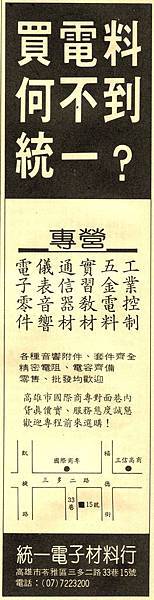 買電料
何不到
統一？
專營
工業控制
五金電料
實習教材
通信器材
儀表音響
電子零件
各種音響附件、套件齊全
精密電阻、電容齊備
零售、批發均歡迎
高雄市國際商專對面巷內
貨真價實、服務態度誠懇
歡迎專程前來選購！
凱旋路
國際商專
福德路
正信高商
三多二路
33巷
15號
統一電子材料行
高雄市苓雅區三多二路33巷15號
電話：(07)7223200